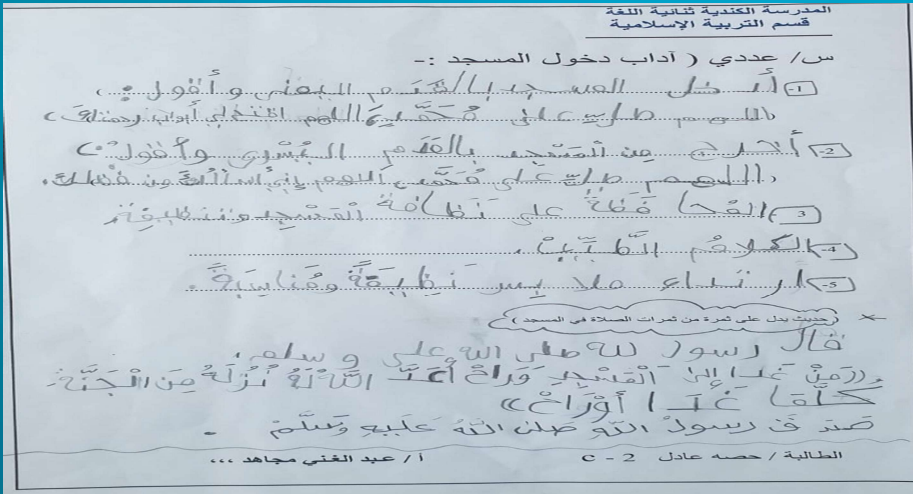 المدرسة الكندية ثنائية اللغة
قسم التربية الإسلامية
س/ عددي ( آداب دخول المسجد :-
1- أدخل المسجد بالقدم اليمنى وأقول :
اللهم صل على محمد اللهم افتح لي أبواب رحمتك
2- أخرج من المسجد بالقدم اليسرى وأقول :
اللهم صل على محمد اللهم إني أسألك من فضلك .
3 المحافظة على نظافة المسجد وتنظيفه
4- الكلام الطيب .
5- ارتداء ملابس نظيفة ومناسبة .
(حديث يدل على ثمرة من ثمرات الصلاة في المسجد)
قال رسول لله صلى الله على وسلم :
((من غدا إلى المسجد وراح أعد الله له نزله من الجنة
كلما غدا أوراح))
صدق رسول الله صلى الله عليه وسلم .
الطالبة / حصه عادل 2 - C أ / عبد الغني مجاهد ...